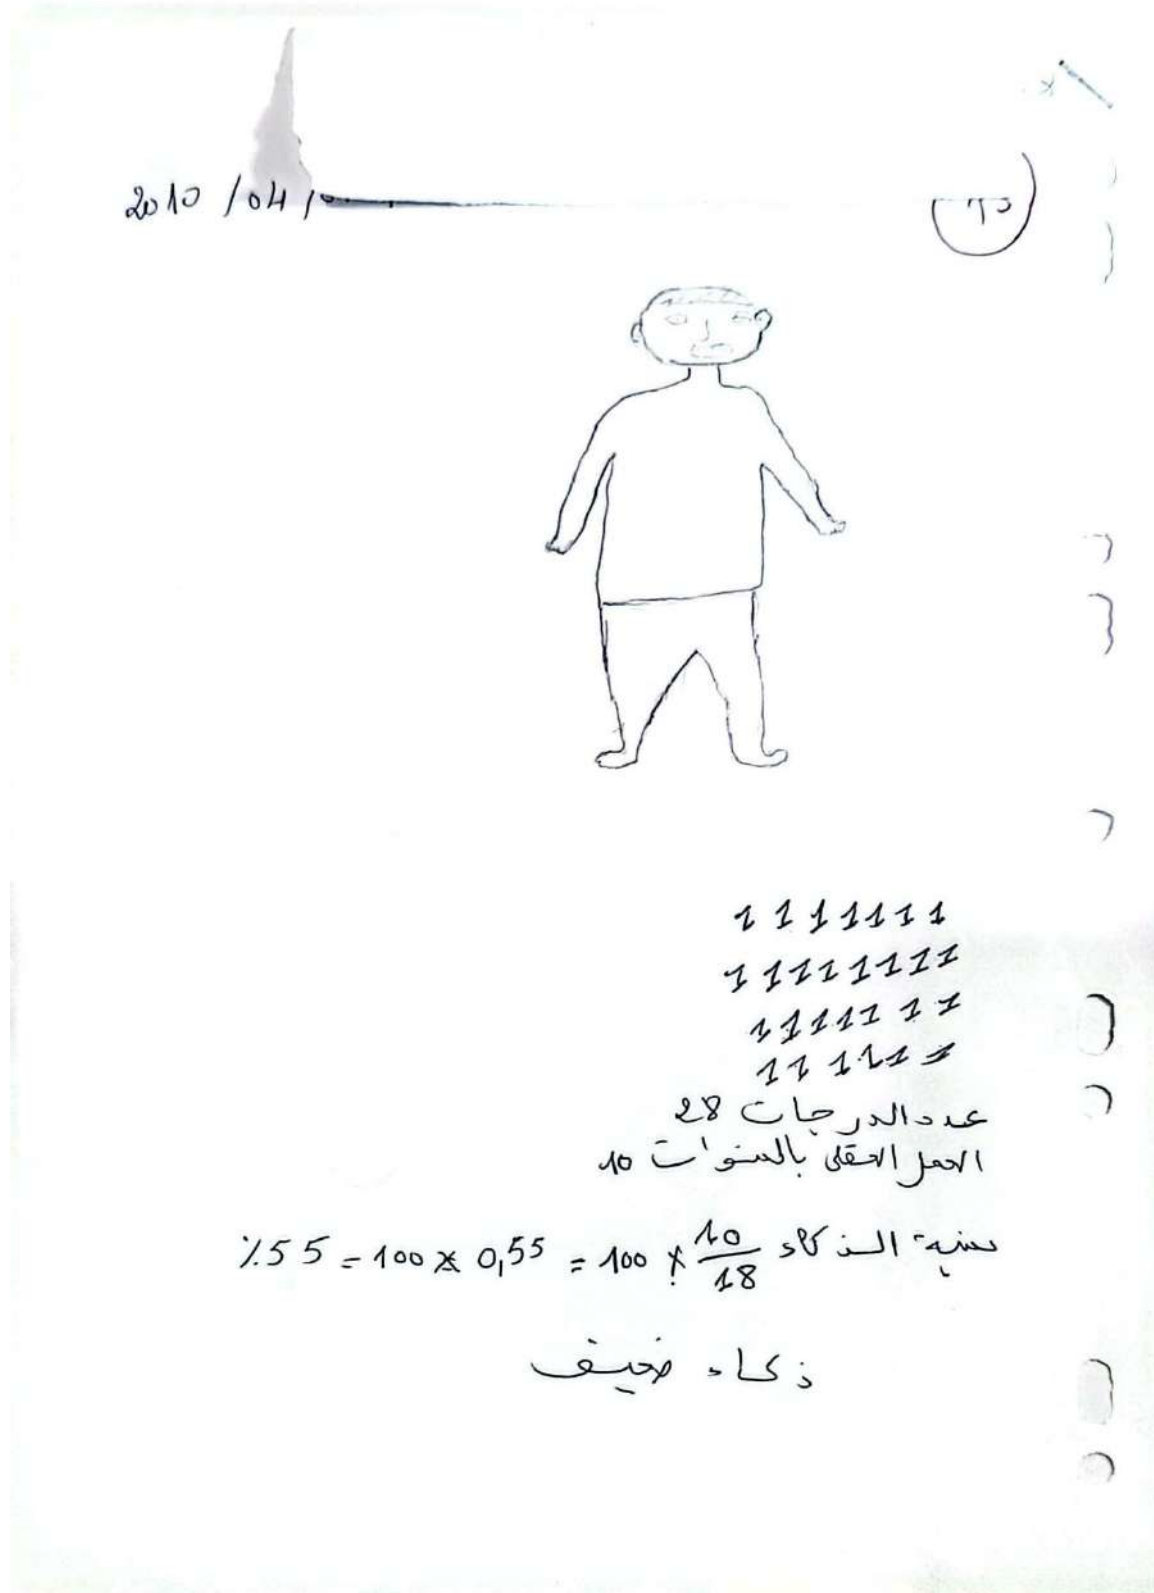 2010 / 04 /
1 1 1 1 1 1 1
1 1 1 1 1 1 1 1
1 1 1 1 1 1 1
1 1 1 1 1 1
عدد الدرجات 28
العمر العقلي بالسنوات 10
نسبة الذكاء 10/18 × 100 = 0,55 × 100 = 55٪
ذكاء ضعيف